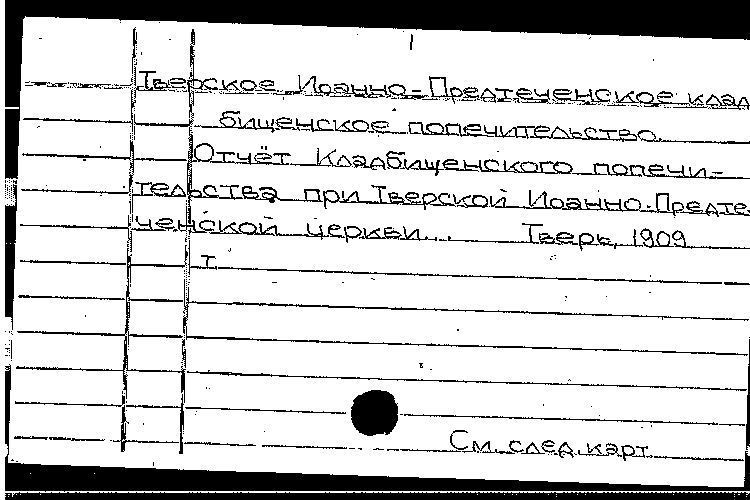 Тверское Иоанно-Предтеченское клад
бищенское попечительство.
Отчёт Кладбищенского попечи-
тельства при Тверской Иоанно-Предте-
ченской церкви... Тверь, 1909
т.
См. след. карт.